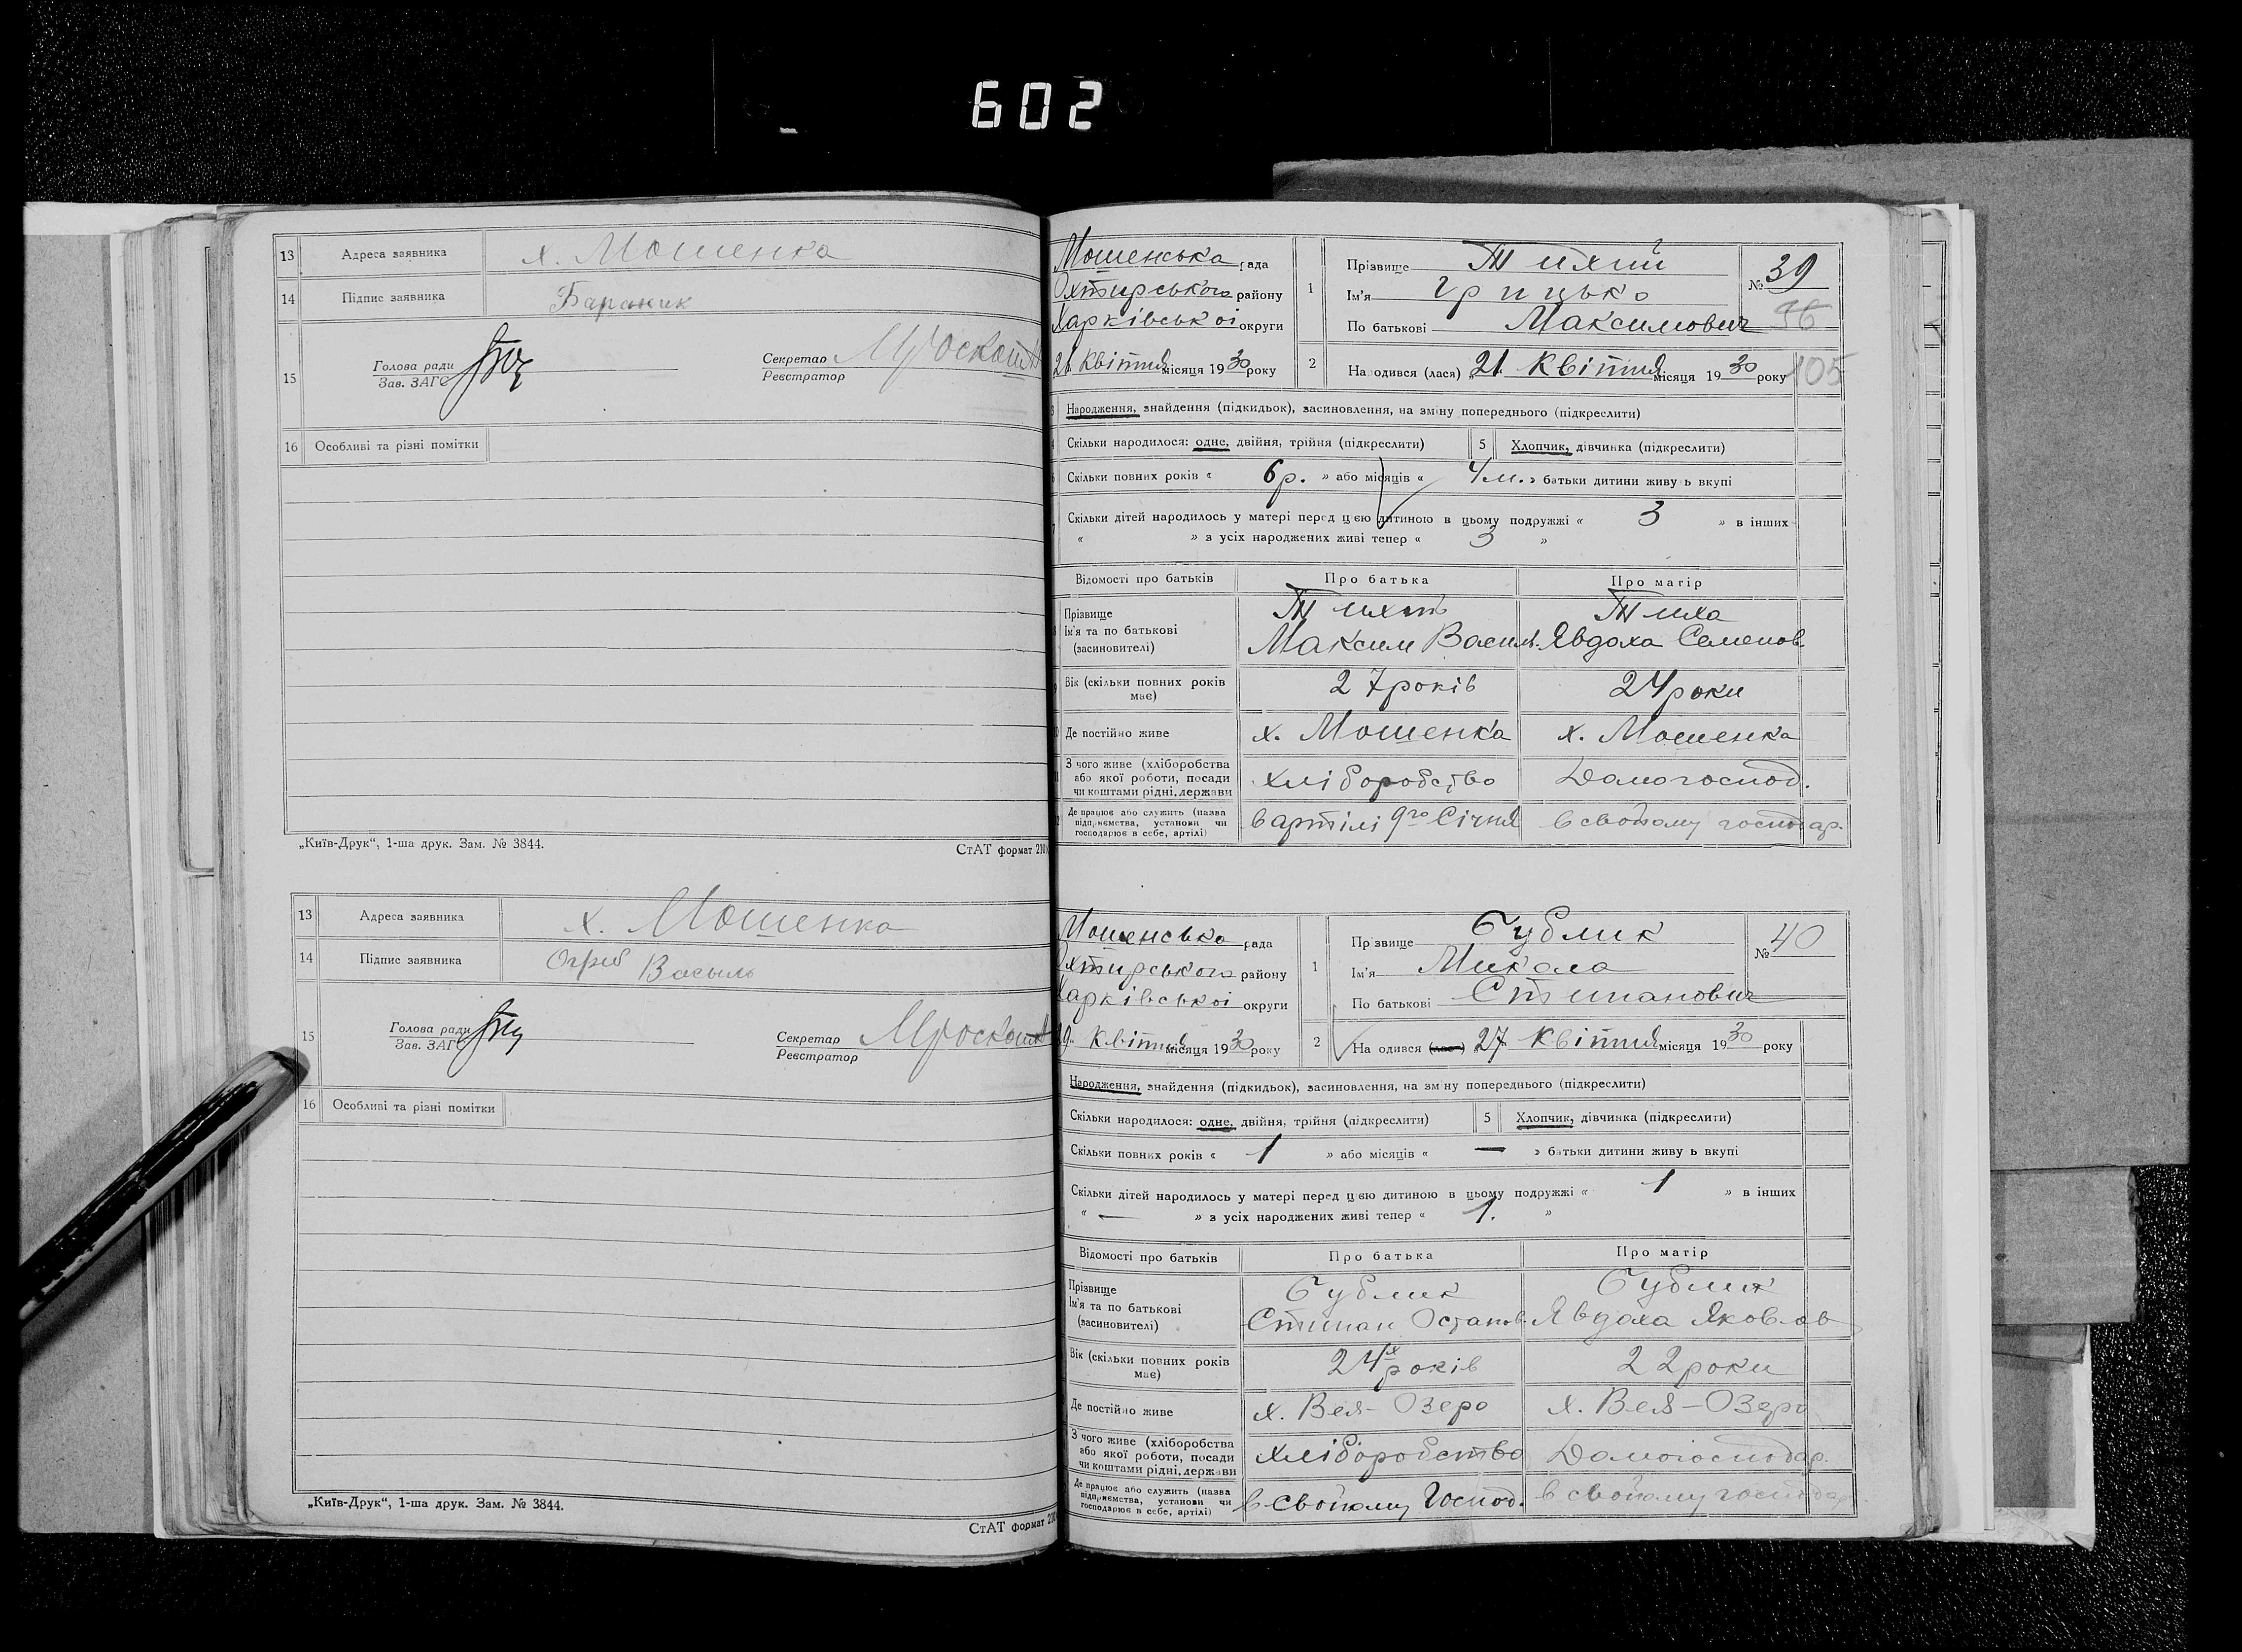 602
13 Адреса заявника х. Мошенка
14 Підпис заявника Бараник
15 Голова ради
Зав. ЗАГС
Секретар
Реєстратор
16 Особливі та різні помітки
„Київ-Друк“, 1-ша друк. Зам. № 3844.
СтАТ формат
13 Адреса заявника х. Мошенка
14 Підпис заявника Огриб Васыль
15 Голова ради
Зав. ЗАГС
Секретар
Реєстратор
16 Особливі та різні помітки
„Київ-Друк“, 1-ша друк. Зам. № 3844.
СтАТ формат
Мошенська рада
Охтирського району
Харківської округи
21 Квітня місяця 1930 року
1 Прізвище Тихий
Ім'я Грицько
По батькові Максимович
№ 39
96
2 Народився (лася) „21 Квітня місяця 1930 року
105
Народження, знайдення (підкидьок), засиновлення, на зміну попереднього (підкреслити)
Скільки народилося: одне, двійня, трійня (підкреслити) 5 Хлопчик, дівчинка (підкреслити)
Скільки повних років « 6р. » або місяців « 4м. » батьки дитини живуть вкупі
Скільки дітей народилось у матері перед цією дитиною в цьому подружжі « 3 » в інших
« » з усіх народжених живі тепер « 3 »
Відомості про батьків Про батька Про матір
Прізвище
Ім'я та по батькові
(засиновителі)
Тихий Тиха
Максим Васил. Явдоха Семенов.
Вік (скільки повних років має) 27 років 24 роки
Де постійно живе х. Мошенка х. Мошенка
З чого живе (хліборобства
або якої роботи, посади
чи коштами рідні, держави
хліборобство Домогоспод.
Де працює або служить (назва
підприємства, установи чи
господарює в себе, артілі)
в артілі 9го Січня в свойому господар.
Мошенська рада
Охтирського району
Харківської округи
29 Квітня місяця 1930 року
1 Прізвище Бублик
Ім'я Микола
По батькові Стипанович
№ 40
2 Народився (лася) 27 Квітня місяця 1930 року
Народження, знайдення (підкидьок), засиновлення, на зміну попереднього (підкреслити)
Скільки народилося: одне, двійня, трійня (підкреслити) 5 Хлопчик, дівчинка (підкреслити)
Скільки повних років « 1 » або місяців « — » батьки дитини живуть вкупі
Скільки дітей народилось у матері перед цією дитиною в цьому подружжі « 1 » в інших
« — » з усіх народжених живі тепер « 1. »
Відомості про батьків Про батька Про матір
Прізвище
Ім'я та по батькові
(засиновителі)
Бублик Бублик
Стипан Остапов. Явдоха Яковлов
Вік (скільки повних років має) 24х років 22 роки
Де постійно живе х. Вел-Озеро х. Вел-Озеро
З чого живе (хліборобства
або якої роботи, посади
чи коштами рідні, держави
хліборобство Домогосподар.
Де працює або служить (назва
підприємства, установи чи
господарює в себе, артілі)
в свойому Господ. в свойому господар